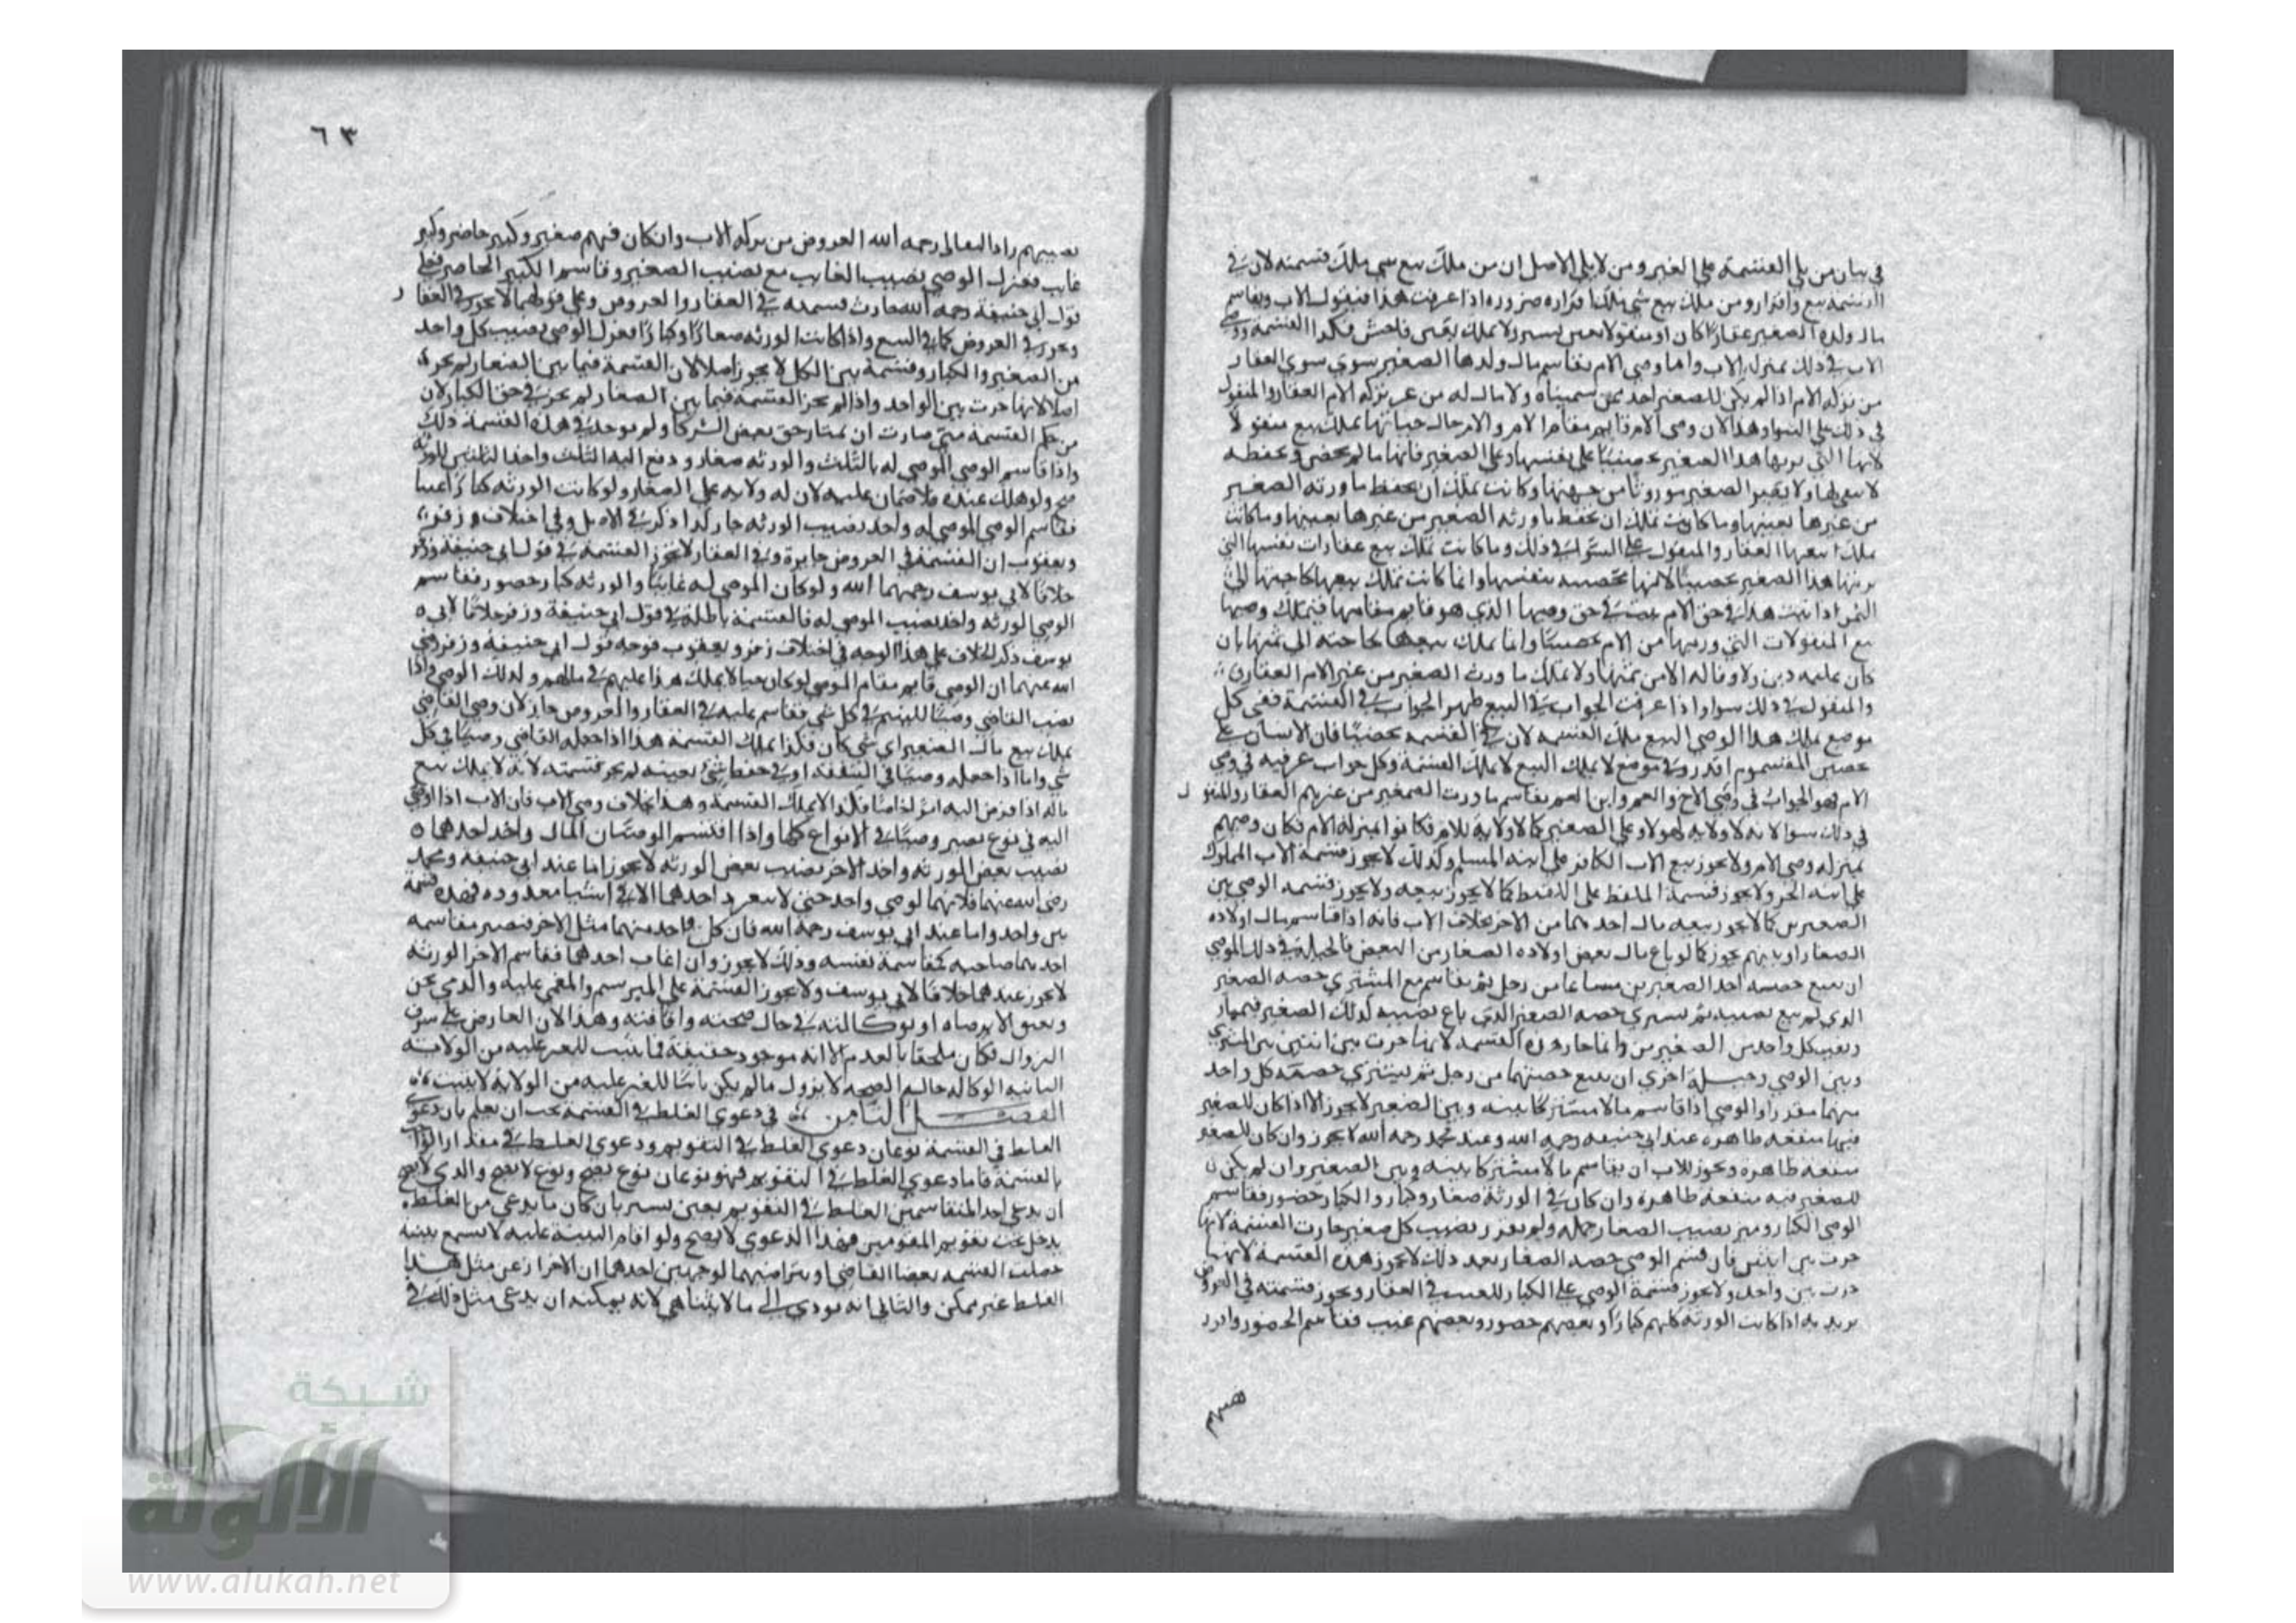 في بيان من يلي القسمة على الغير ومن لا يلي الاصل ان من ملك بيع شي ملك قسمته لان في
القسمة بيع وافراز ومن ملك بيع شي ملك افرازه ضرورة اذا عرفت هذا فنقول الاب يقاسم
مال ولده الصغير عقارًا كان او منقولا بغبن يسير ولا يملك بغبن فاحش فكذا القسمة ووصي
الاب في ذلك بمنزلة الاب واما وصي الام يقاسم مال ولدها الصغير سوي سوي العقار
من تركه الام اذا لم يكن للصغير احد ممن سميناه ولا مال له من غير تركه الام العقار والمنقول
في ذلك على السوا وهذا لان وصي الام قايم مقام الام والام حال حياتها تملك بيع منقولا
من غيرها بعينها وما كانت تملك ان تحفظ ما ورثه الصغير من غيرها بعينها وما كانت
تملك بيعها العقار والمنقول على السوا في ذلك وما كانت تملك بيع عقارات نفسها التي
يرثها هذا الصغير تحصينًا لانها محصنة بنفسها وانما كانت تملك بيعها لحاجتها الى
الثمن اذا ثبت هذا في حق الام ثبت في حق وصيها الذي هو قايم مقامها فيملك وصيها
بيع المنقولات التي ورثها من الام تحصينًا وانما يملك بيعها لحاجته الى ثمنها بان
كان عليه دين ولا وفا له الا من ثمنها ولا تملك ما ورث الصغير من غير الام العقار
والمنقول في ذلك سوا واذا عرفت الجواب في البيع ظهر الجواب في القسمة ففي كل
موضع يملك هذا الوصي البيع يملك القسمة لان في القسمة تحصينًا فان الانسان على
تحصين المقسوم اقدر وفي موضع لا يملك البيع لا يملك القسمة وكل جواب عرفته في وصي
الام فهو الجواب في وصي الاخ والعم وابن العم يقاسم ما ورث الصغير من غيرهم العقار والمنقول
في ذلك سوا لانه لا ولاية لهولا على الصغير كما لا ولاية للام فكانوا بمنزلة الام فكان وصيهم
بمنزلة وصي الام ولا يجوز بيع الاب الكافر على ابنه المسلم وكذلك لا يجوز قسمة الاب المملوك
على ابنه الحر ولا يجوز قسمة الملتقط على اللقيط كما لا يجوز بيعه ولا يجوز قسمة الوصي بين
الصغيرين كما لا يجوز بيعه مال احدهما من الاخر بخلاف الاب فانه اذا قاسم مال اولاده
الصغار او بينهم يجوز كما لو باع مال بعض اولاده الصغار من البعض فالحيلة في ذلك للوصي
ان يبيع حصة احد الصغيرين مشاعا من رجل ثم يقاسم مع المشتري حصة الصغير
الذي لم يبع نصيبه ثم يشتري حصة الصغير الذي باع نصيبه لذلك الصغير فيمتاز
نصيب كل واحد من الصغيرين وانما جاز هذه القسمة لانها جرت بين اثنين بين المشتري
وبين الوصي وحيلة اخرى ان يبيع حصتهما من رجل ثم يشتري حصة كل واحد
منهما مفرزا والوصي اذا قاسم مالا مشتركا بينه وبين الصغير لا يجوز الا اذا كان للصغير
فيها منفعة ظاهرة عند ابي حنيفة رحمه الله وعند محمد رحمه الله لا يجوز وان كان للصغير
منفعة ظاهرة ويجوز للاب ان يقاسم مالا مشتركا بينه وبين الصغير وان لم يكن
للصغير فيه منفعة ظاهرة وان كان في الورثة صغار وكبار والكبار حضور فقاسم
الوصي الكبار وميز نصيب الصغار جملة ولم يفرز نصيب كل صغير جازت القسمة لانها
جرت بين اثنين فان قسم الوصي حصة الصغار بعد ذلك لا يجوز هذه القسمة لانها
جرت بين واحد ولا يجوز قسمة الوصي على الكبار الغيب في العقار ويجوز قسمته في العروض
يريد به اذا كانت الورثة كلهم كبارًا وبعضهم حضور وبعضهم غيب فقاسم الحضور وافرز
٦٣
نصيبهم زاد رحمه الله العروض من تركه الاب وان كان فيهم صغير وكبير حاضر وكبير
غايب فعزل الوصي نصيب الغايب مع نصيب الصغير وقاسم الكبير الحاضر فعلى
قول ابي حنيفة رحمه الله جازت قسمته في العقار والعروض وعلى قولهما لا يجوز في العقار
ويجوز في العروض كما في البيع واذا كانت الورثة صغارًا وكبارًا فعزل الوصي نصيب كل واحد
من الصغير والكبار وقسمة بين الكل لا يجوز اصلا لان القسمة فيما بين الصغار لم يجز
اصلا لانها جرت بين الواحد واذا لم يجز القسمة فيما بين الصغار لم يجز في حق الكبار لان
من حكم القسمة متى صارت ان يمتاز حق بعض الشركا ولم يوجد في هذه القسمة ذلك
واذا قاسم الوصي الموصي له بالثلث والورثة صغار ودفع اليه الثلث واخذ الثلثين للورثة
صح ولو هلك عنده فلا ضمان عليه لان له ولاية على الصغار ولو كانت الورثة كبارًا غيبا
فقاسم الوصي الموصي له واخذ نصيب الورثة جاز كذا ذكر في الاصل وفي اختلاف زفر
ويعقوب ان القسمة في العروض جايزة وفي العقار لا يجوز القسمة في قول ابي حنيفة وزفر
خلافا لابي يوسف رحمهما الله ولو كان الموصي له غايبًا والورثة كبار حضور فقاسم
الوصي الورثة واخذ نصيب الموصي له فالقسمة باطلة في قول ابي حنيفة وزفر خلافًا لابي
يوسف ذكر الخلاف على هذا الوجه في اختلاف زفر ويعقوب فوجه قول ابي حنيفة وزفر رضي
الله عنهما ان الوصي قايم مقام الموصي لو كان حيا لا يملك هذا عليهم في مالهم وكذلك الوصي واذا
نصب القاضي وصيًا لليتيم في كل شي فقاسم عليه في العقار والعروض جاز لان وصي القاضي
يملك بيع مال الصغير اي شي كان فكذا يملك القسمة هذا اذا جعله القاضي وصيًا في كل
شي واما اذا جعله وصيًا في النفقة او في حفظ شي بعينه لم يجز قسمته لانه لا يملك بيع
ماله اذا فوض اليه امرًا خاصًا فكذا لا يملك القسمة وهذا بخلاف وصي الاب فان الاب اذا اوصي
اليه في نوع يصير وصيًا في الانواع كلها واذا اقتسم الوصيان المال واخذ احدهما
نصيب بعض الورثة واخذ الاخر نصيب بعض الورثة لا يجوز اما عند ابي حنيفة ومحمد
رضي الله عنهما فلانهما كوصي واحد حتى لا ينفرد احدهما الا في اشيا معدودة فهذه قسمة
من واحد واما عند ابي يوسف رحمه الله فان كل واحد منهما مثل الاخر فتصير مقاسمة
احدهما صاحبه كمقاسمة نفسه وذلك لا يجوز وان غاب احدهما فقاسم الاخر الورثة
لا يجوز عندهما خلافا لابي يوسف ولا يجوز القسمة على المبرسم والمغمي عليه والذي يجن
ويفيق الا برضاه او بوكالته في حال صحته وافاقته وهذا لان العارض على شرف
الزوال فكان ملحقا بالعدم الا انه موجود حقيقة فما يثبت للغير عليه من الولاية
الثابتة الوكالة حالة الصحة لا يزول مالم يكن ثابتًا للغير عليه من الولاية لا يثبت
الفصل الثامن في دعوي الغلط في القسمة يجب ان يعلم بان دعوي
الغلط في القسمة نوعان دعوي الغلط في التقويم ودعوي الغلط في مقدار الواجب
بالقسمة فاما دعوي الغلط في التقويم فهو نوعان نوع يصح ونوع لا يصح والذي لا يصح
ان يدعي احد المتقاسمين الغلط في التقويم بغبن يسير بان كان ما يدعي من الغلط
يدخل تحت تقويم المقومين فهذا الدعوي لا يصح ولو اقام البينة عليه لا يسمع بينته
حصلت القسمة بقضا القاضي او بتراضيهما لوجهين احدهما ان الاحتراز عن مثل هذا
الغلط غير ممكن والثاني انه يودي الى ما لا يتناهي لانه يمكنه ان يدعي مثل ذلك في
شبكة
الألوكة
www.alukah.net